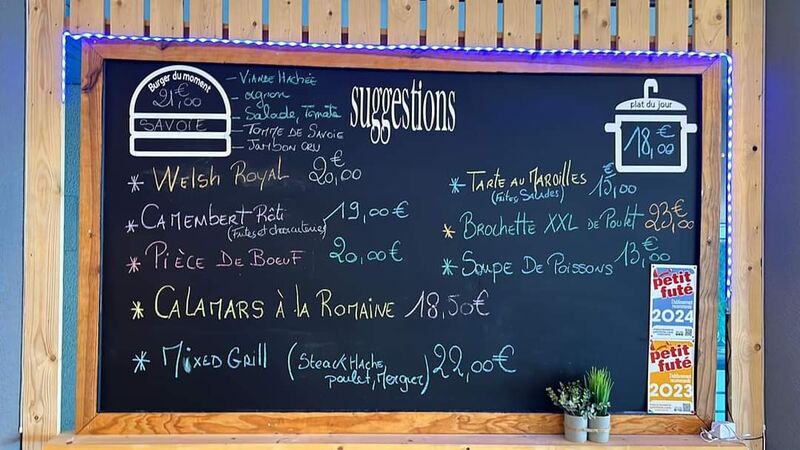 Burger du moment
21,00€
SAVOIE
- VIANDE HACHÉE
- OGNON
Salade, Tomate
- TOMME DE SAVOIE
- JAMBON CRU
suggestions
plat du jour
18,00€
* WELSH ROYAL 20,00€
* CAMEMBERT RÔTI 19,00€
(Frites et charcuteries)
* PIÈCE DE BOEUF 20,00€
* CALAMARS À LA ROMAINE 18,50€
* MIXED GRILL (STEACK HACHE, poulet, Merguez) 22,00€
* TARTE AU MAROILLES 15,00€
(Frites Salades)
* BROCHETTE XXL DE Poulet 23,00€
* SOUPE DE POISSONS 13,00€
petit
futé
2024
petit
futé
2023